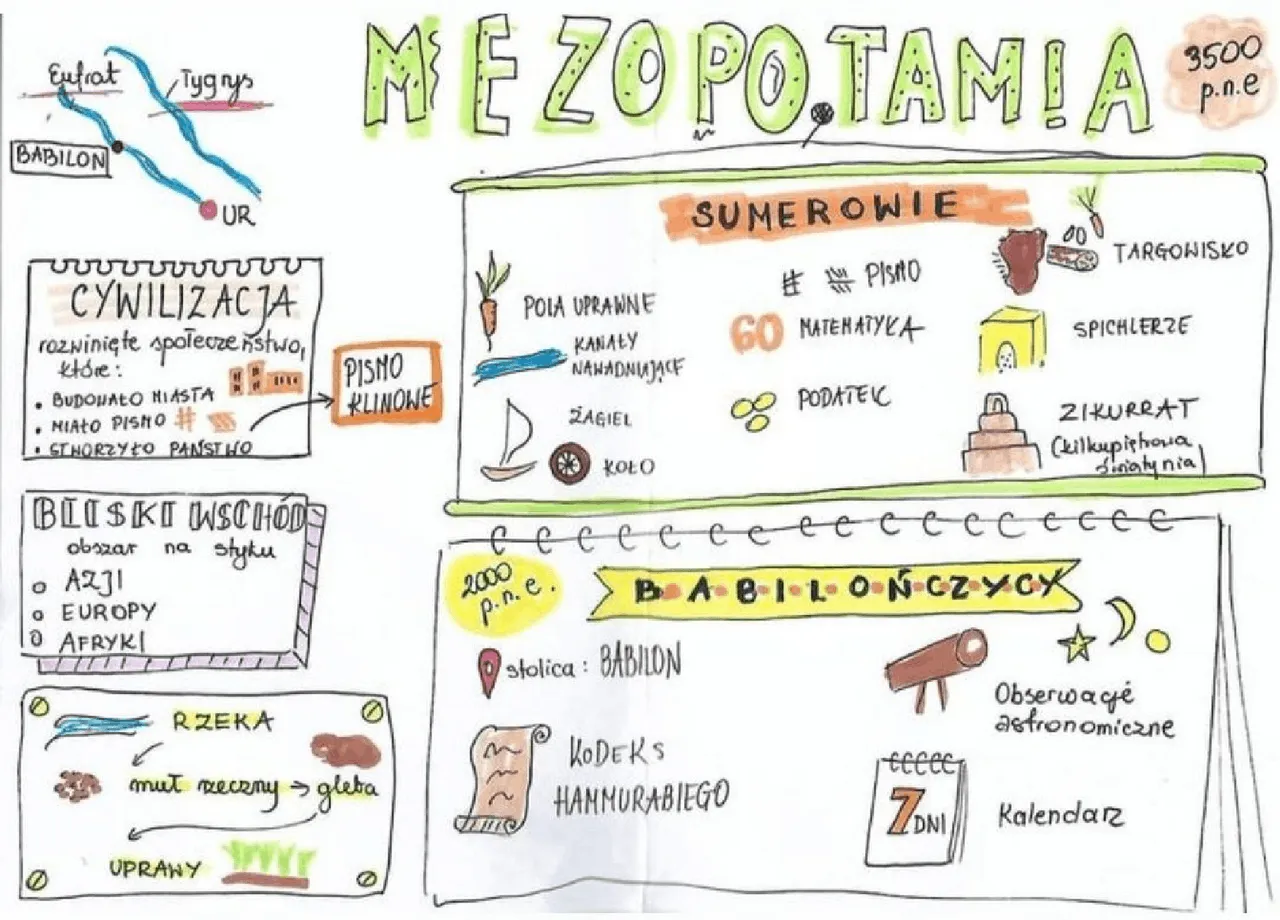 MEZOPOTAMIA
3500
p.n.e
Eufrat
Tygrys
BABILON
UR
CYWILIZACJA
rozwinięte społeczeństwo,
które:
• BUDOWAŁO MIASTA
• MIAŁO PISMO
• STWORZYŁO PAŃSTWO
PISMO
KLINOWE
BLISKI WSCHÓD
obszar na styku
AZJI
EUROPY
AFRYKI
RZEKA
muł rzeczny → gleba
UPRAWY
SUMEROWIE
POLA UPRAWNE
KANAŁY
NAWADNIAJĄCE
ŻAGIEL
KOŁO
PISMO
60 MATEMATYKA
PODATEK
TARGOWISKO
SPICHLERZE
ZIKURRAT
(kilkupiętrowa
świątynia)
2000
p.n.e.
BABILOŃCZYCY
stolica: BABILON
KODEKS
HAMMURABIEGO
Obserwacje
astronomiczne
7 DNI
Kalendarz